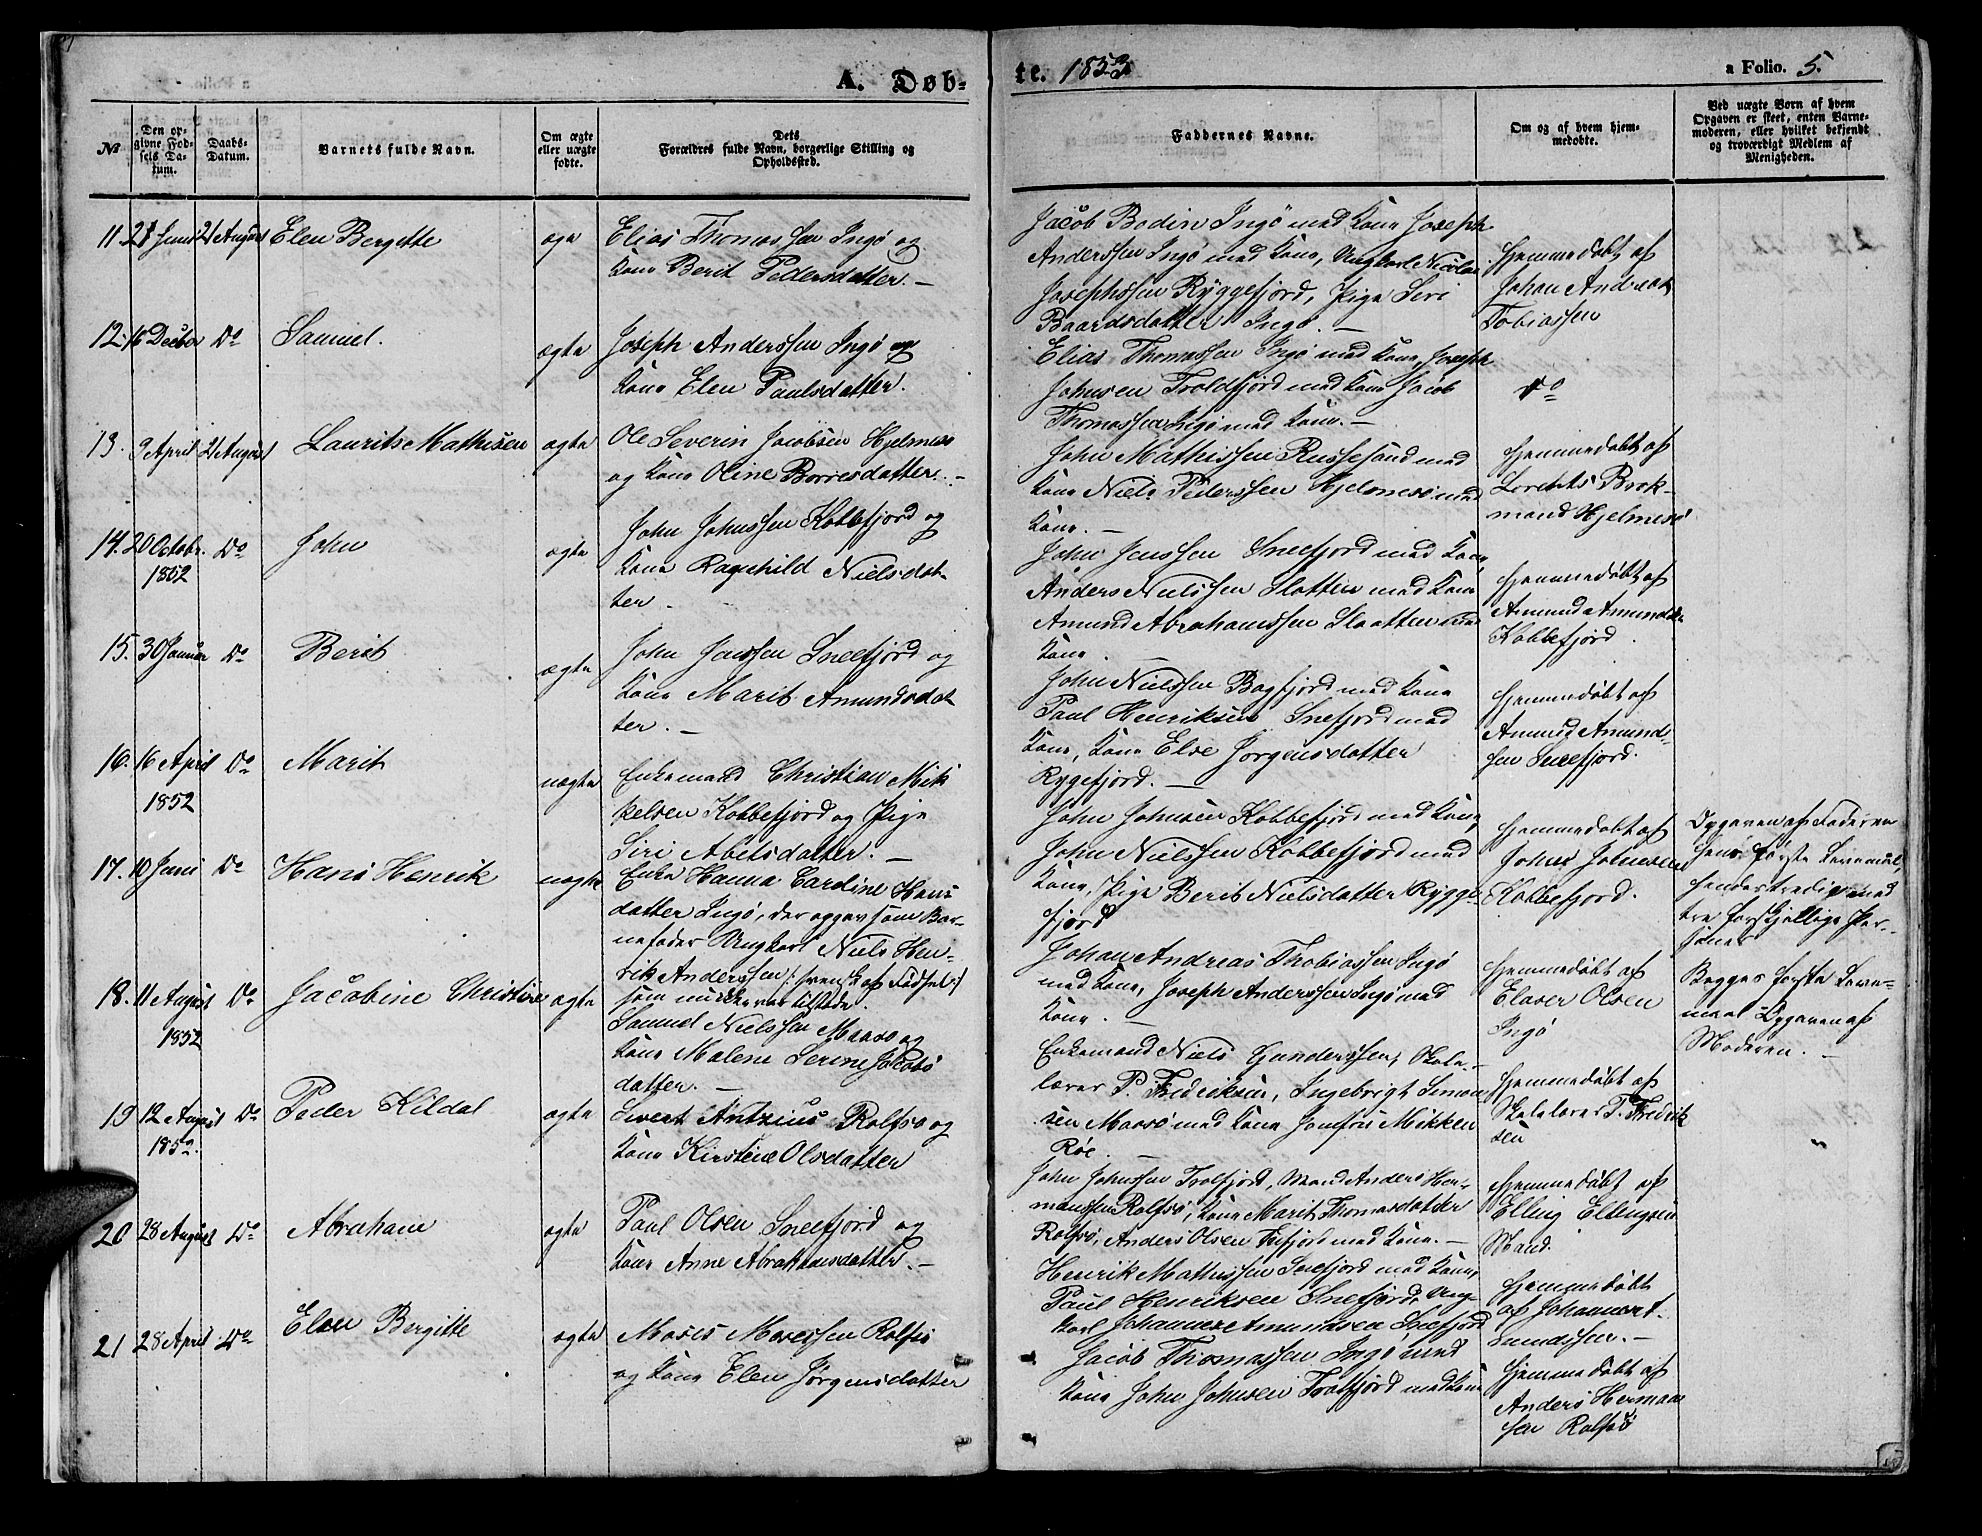 A. Døb-
te. 1853
a Folio. 5.
№
Den op-
givne Fød-
sels Da-
tum.
Daabs-
Datum.
Barnets fulde Navn.
Om ægte
eller uægte
fødte.
Dets
Forældres fulde Navn, borgerlige Stilling og
Opholdssted.
Faddernes Navne.
Om og af hvem hjem-
medøbte.
Ved uægte Børn af hvem
Opgaven er skeet, enten Barne-
moderen, eller hvilket bekjendt
og troværdigt Medlem af
Menigheden.
11. 21 Juni 21 August Elen Bergitte ægte
Elias Thomassen Ingø og
Kone Berit Pedersdatter. —
Jacob Bodin Ingø med Kone Joseph
Anderssen Ingø med Kone, Ungkarl Nicolai
Josephssen Ryggefjord, Pige Siri
Baardsdatter Ingø. —
Hjemmedøbt af
Johan Andreas
Tobiassen
12. 16 Decbr Do Samuel. ægte
Joseph Anderssen Ingø og
Kone Elen Paulsdatter.
Elias Thomassen Ingø med Kone, Joseph
Johnsen Troldfjord med Kone Jacob
Thomassen Ingø med Kone. —
Do
13. 9 April 21 August Laurits Mathisen ægte
Ole Severin Jacobsen Hjelmsø
og Kone Oline Borresdatter. —
John Mathissen Russesund med
Kone Niels Pederssen Hjelmsø med
Kone. —
Hjemmedøbt af
Lorents Brok-
mand Hjelmesø
14. 20 Octobr. Do John ægte
1852
John Johnssen Kobbefjord og
Kone Ragnhild Nielsdat-
ter. —
John Jenssen Sneefjord med Kone
Anders Nielssen Slotten med Kone
Amund Abrahamssen Slaatten med
Kone
Hjemmedøbt af
Amund Amundsen
Kobbefjord.
15. 30 Januar Do Berit ægte
John Janssen Sneefjord og
Kone Marit Amundsdat-
ter. —
John Nielssen Bagfjord med Kone
Paul Henriksen Snefjord med
Kone, Kone Else Jørgensdatter
Rygefjord. —
Hjemmedøbt af
Amund Amund-
sen Sneefjord.
16. 16 April Do Marit uægte
1852
Enkemand Christian Mik
kelsen Kobbefjord og Pige
Siri Abelsdatter. —
John Johnsen Kobbefjord med Kone,
John Nielssen Kobbefjord med
Kone, Pige Berit Nielsdatter Rygge-
fjord
Hjemmedøbt af
John Johnsen
Kobbefjord.
Opgaven af Faderen
hans første Leiermaal,
hendes tredje med
tre forskjellige Per-
soner
17. 10 Juni Do Hans Henrik uægte
Enke Hanna Cardine Hans
datter Ingø, der opgav som Bar-
nefader Ungkarl Niels Hen-
rik Anderssen /: svensk af Fødsel :/
som nu ikke var tilstede.
Johan Andreas Thobiassen Ingø
med Kone, Joseph Anderssen Ingø med
Kone. —
Hjemmedøbt af
Elaser Olsen
Ingø
Begges første Leier-
maal Opgaven af
Moderen. —
18. 11 August Do Jacobine Christine ægte
1852
Samuel Nielssen Maasø og
Kone Malene Serine Jacobs
datter. —
Enkemand Niels Gunderssen, Skole-
lærer P. Fredriksen, Ingebrigt Simon
sen Maasø med Kone Jomfru Mikken
Røe. —
Hjemmedøbt af
Skolelærer P. Fredrik
sen
19 12 August Do Peder Kildal ægte
1852.
Sivert Antzius Rolfsø og
Kone Kirstine Olsdatter
John Johnssen Trolfjord, Mand Anders Her-
manssen Rolfsø, Kone Marit Thomasdatter
Rolfsø, Anders Olsen Tufjord med Kone. —
Hjemmedøbt af
Elling Ellingsen
Mand.
„
20 28 August Do Abraham ægte
Paul Olsen Sneefjord og
Kone Anne Abrahamsdatter. —
Henrik Mathissen Snefjord med Kone,
Paul Henriksen Snefjord, Ung-
karl Johannes Amundsen Snefjord
Hjemmedøbt
af Johannes A-
mundssen. —
21 28 April Do Elen Bergitte ægte
Moses Mosessen Rolfsø
og Kone Elen Jørgensdatter
Jacob Thomassen Ingø med
Kone John Johnsen Trolfjord med Kone
Hjemmedøbt af
Anders Herman
sen Rolfsø